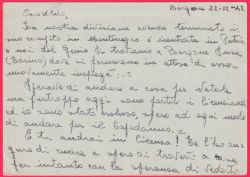 Borgone 22-12-42
Caro Elio,
La nostra divisione avendo terminato il
suo compito in Montenegro è rientrata in Patria
e noi del Genio ci troviamo a Borgone Susa
(Torino) dove ci fermeremo in attesa di essere
nuovamente impiegati.
Speravo di andare a casa per Natale
ma purtroppo oggi sono partiti i licenziandi
ed io sono stato escluso, spero ad ogni modo
di andare per il Capodanno.
E tu andrai in licenza? Te l'au-
guro di cuore e spero di trovarti a casa
per intanto con la speranza di vederti